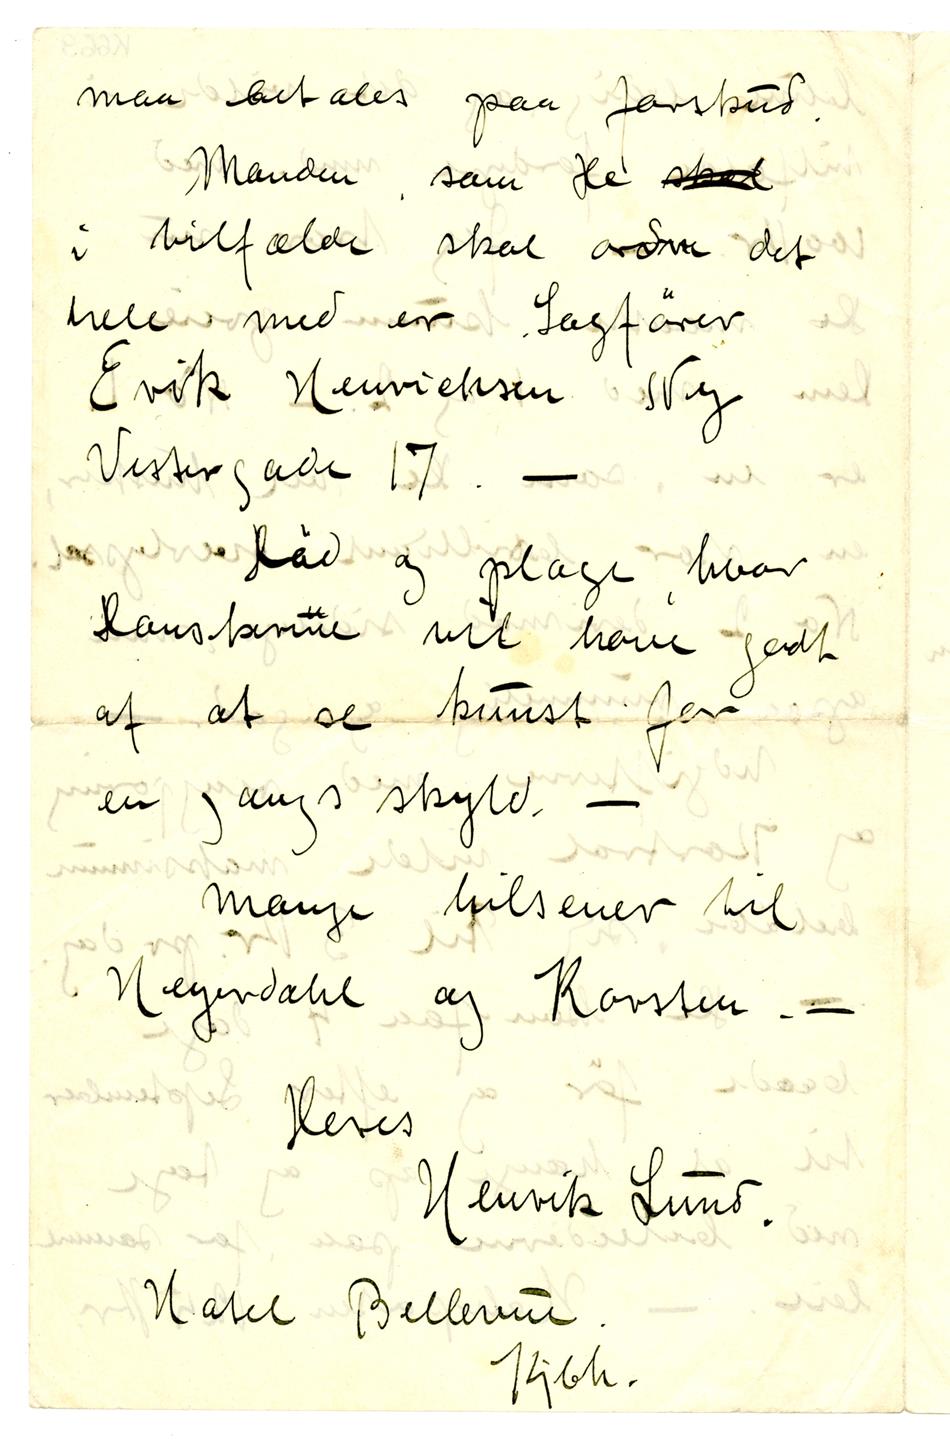 maa betales paa forskud.
Manden, som De skal
i tilfælde skal ordne det
hele med er Sagförer
Erik Henrichsen Ny
Vestergade 17. —
Råd og plage, hvor
Danskerne vil have godt
af at se kunst for
en gangs skyld. —
Mange hilsener til
Heyerdahl og Karsten. —
Deres
Henrik Lund.
Hotel Bellevue.
Kjbh.